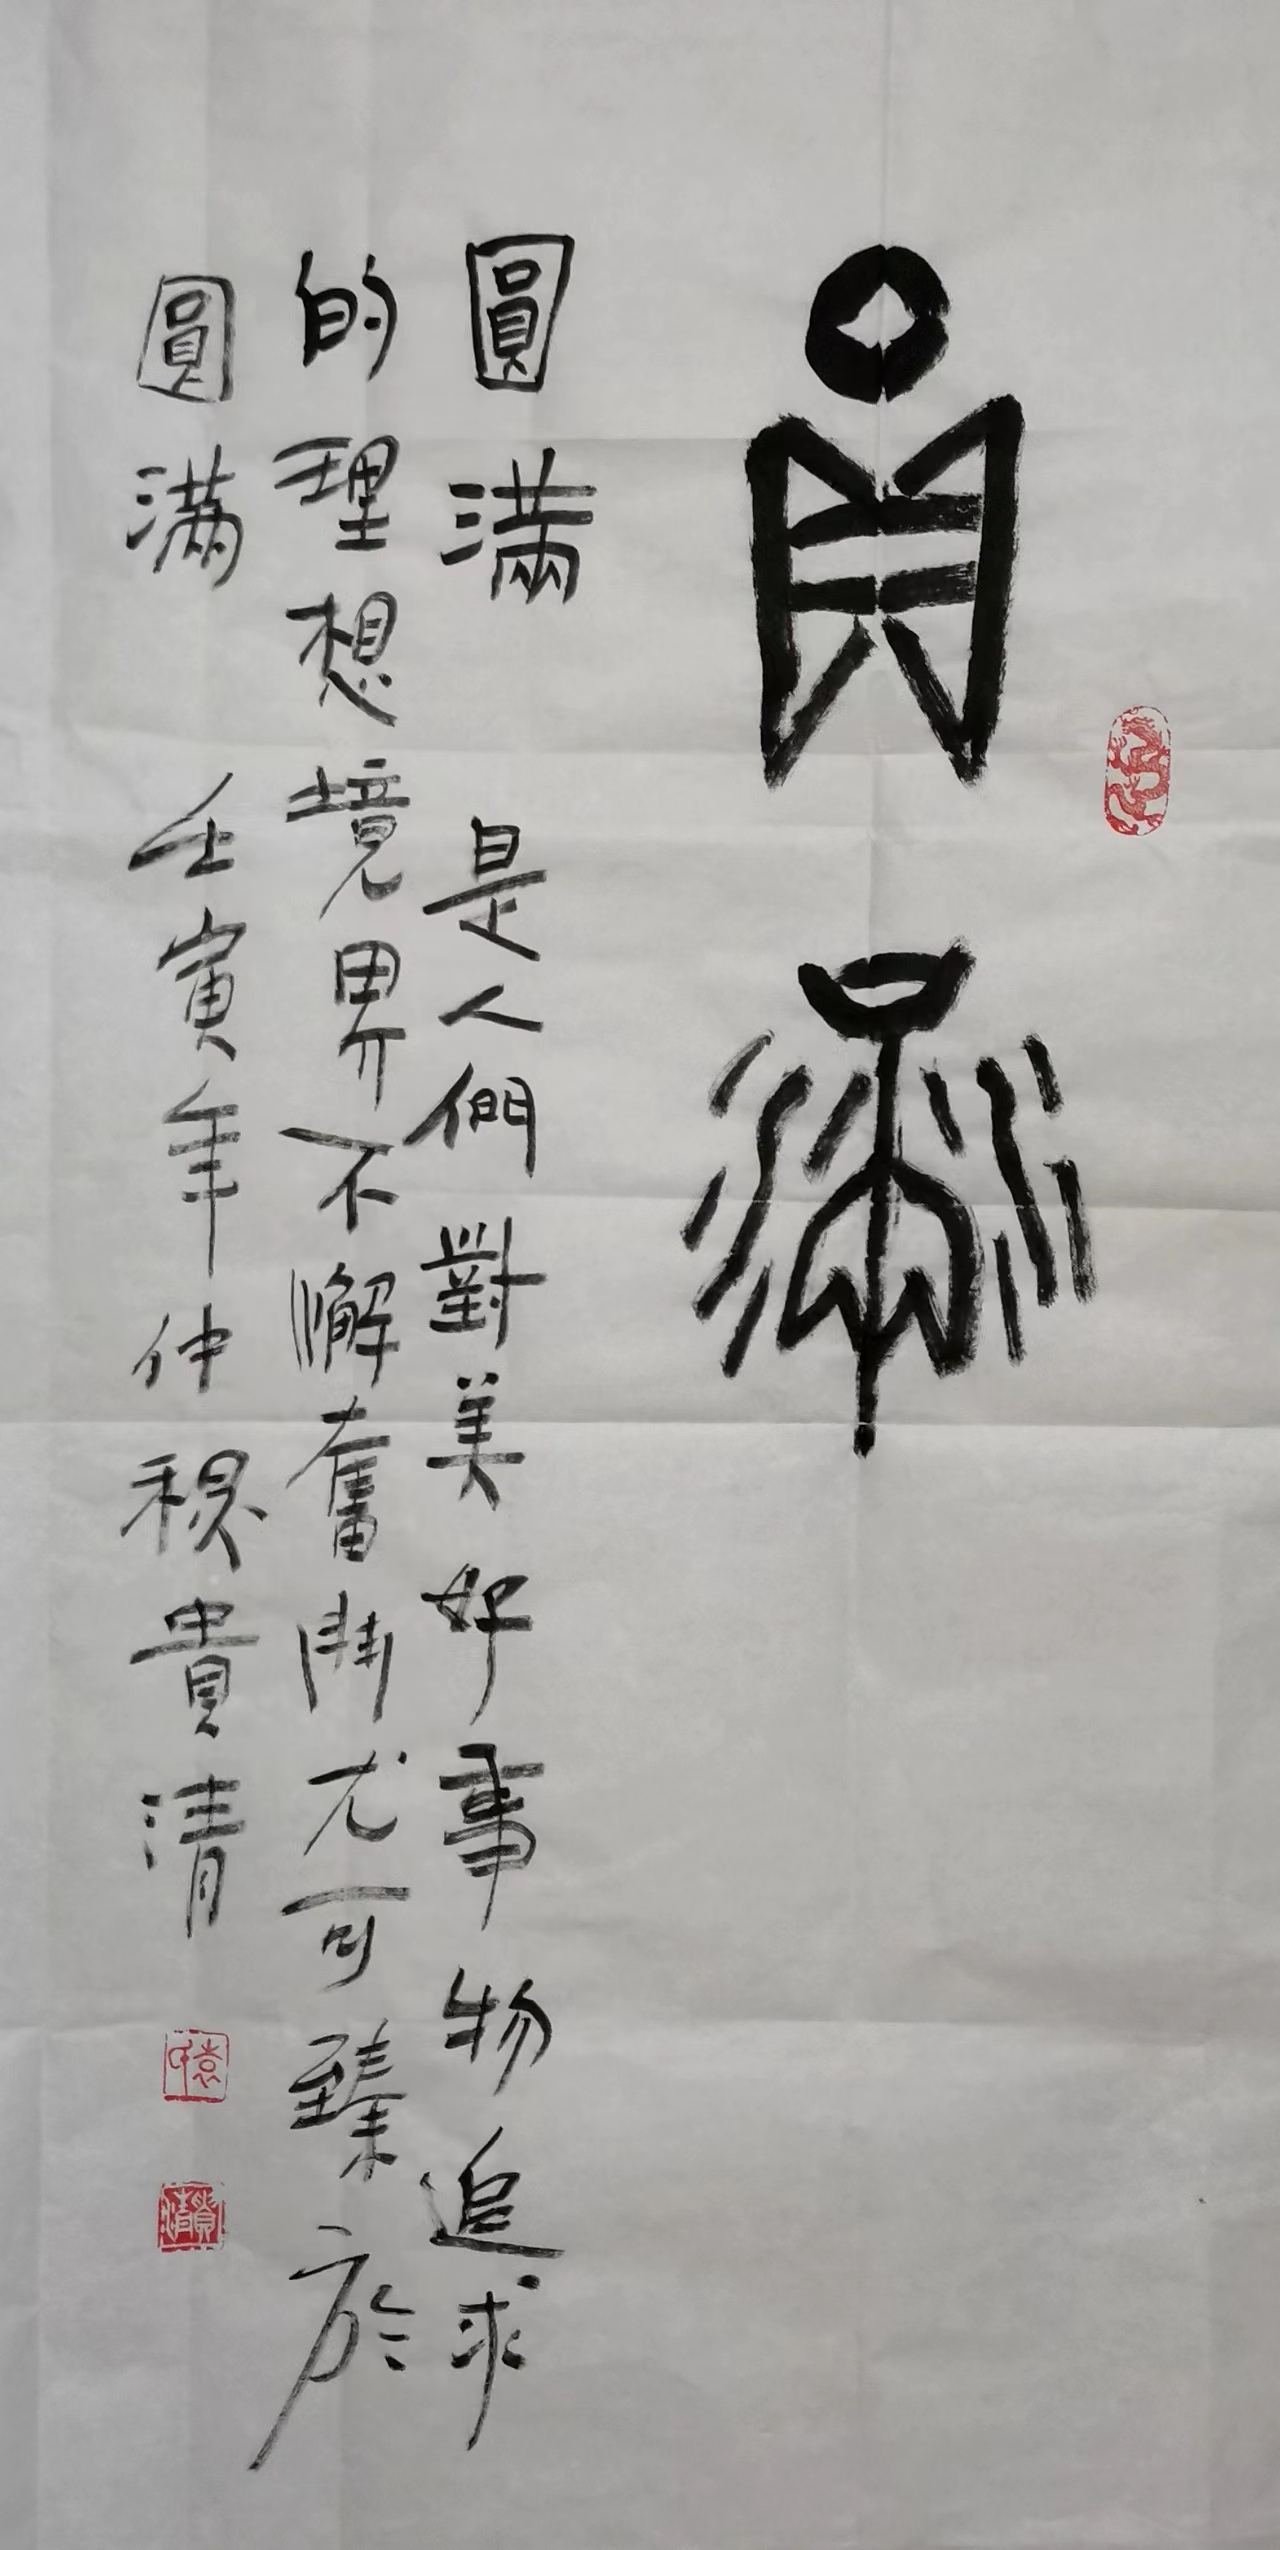 員滿
圓滿 是人們對美好事物追求
的理想境界不懈奮鬥尤可臻於
圓滿 壬寅年仲秋貴清
貴清